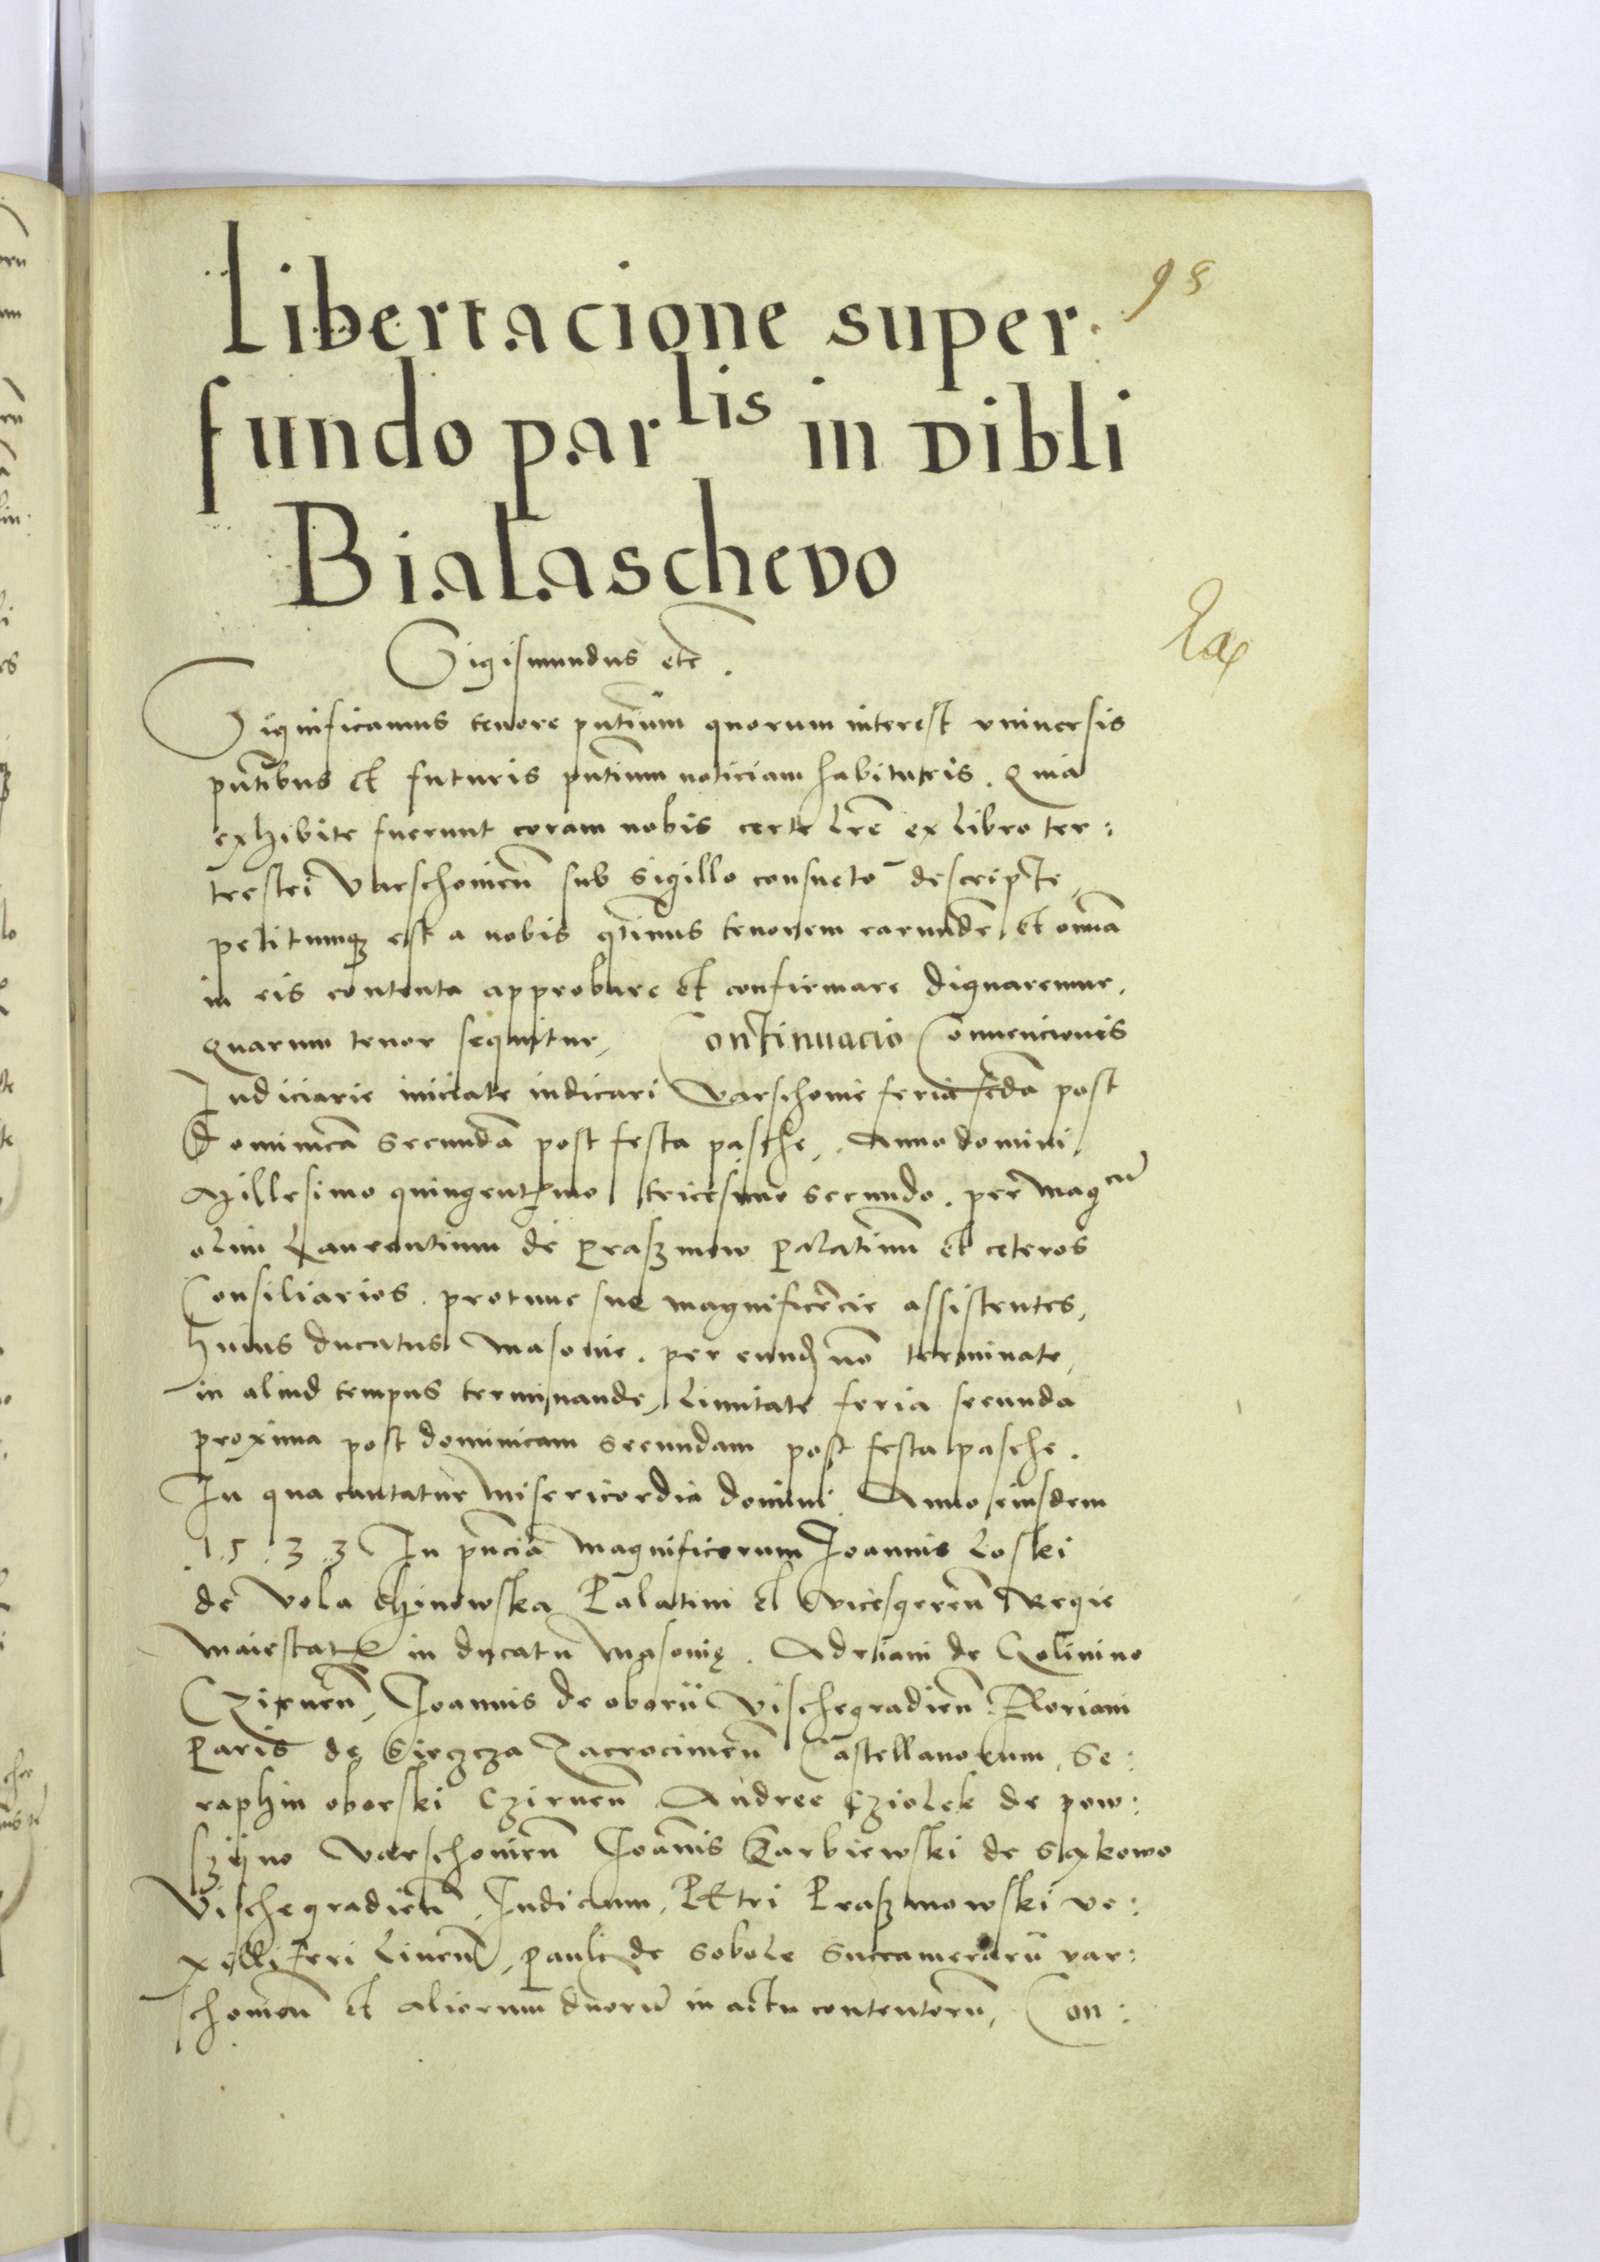 98
Libertacione super
fundo parlis in Dibli
Bialaschevo
Sigismundus etc.
Significamus tenore pntium quorum interest universis
pntibus et futuris pntium noticiam habituris. Quia
exhibite fuerunt coram nobis certe lre ex libro ter:
trestri Varschouien sub sigillo consueto descripte,
petitumq est a nobis qtinus tenorem earunde et omia
in eis contenta approbare et confirmare dignaremur.
Quarum tenor sequitur, Continuacio Convencionis
Judiciarie iniciate iudicari Varschouie feria scda post
Dominica secunda post festa pasche, Anno domini
Millesimo quingentmo tricesimo secundo. per magcu
olim Laurentium de Praszmow Palatinu et ceteros
Consiliarios. protunc sue magnificecie assistentes,
huius ducatus Masouie. per eund no terminate,
in aliud tempus terminande, limitate feria secunda
proxima post dominicam secundam post festa pasche.
In qua cantatur Misericordia domini. Anno eiusdem
1.5.3.3 In pncia Magnificorum Joannis Loski
de Vola Chinowska Palatini et vicesgeren Regie
Maiestat in ducatu Masouię. Adriani de Kolinino
Czirnen, Joannis de oborii Vischegradien Floriani
Paris de Siezcza Zacrocimen Castellanorum, Se:
raphin oborski Czirnen Andree Cziolek de pow:
szyno Varschouien Joanis Karbiewski de
Vischegradien, Judicum, Petri Praszmowski ve:
xilliferi Liuen, pauli de Sobole Succamerarii var:
schouien et aliorum dnoru in actu contentoru, Con: